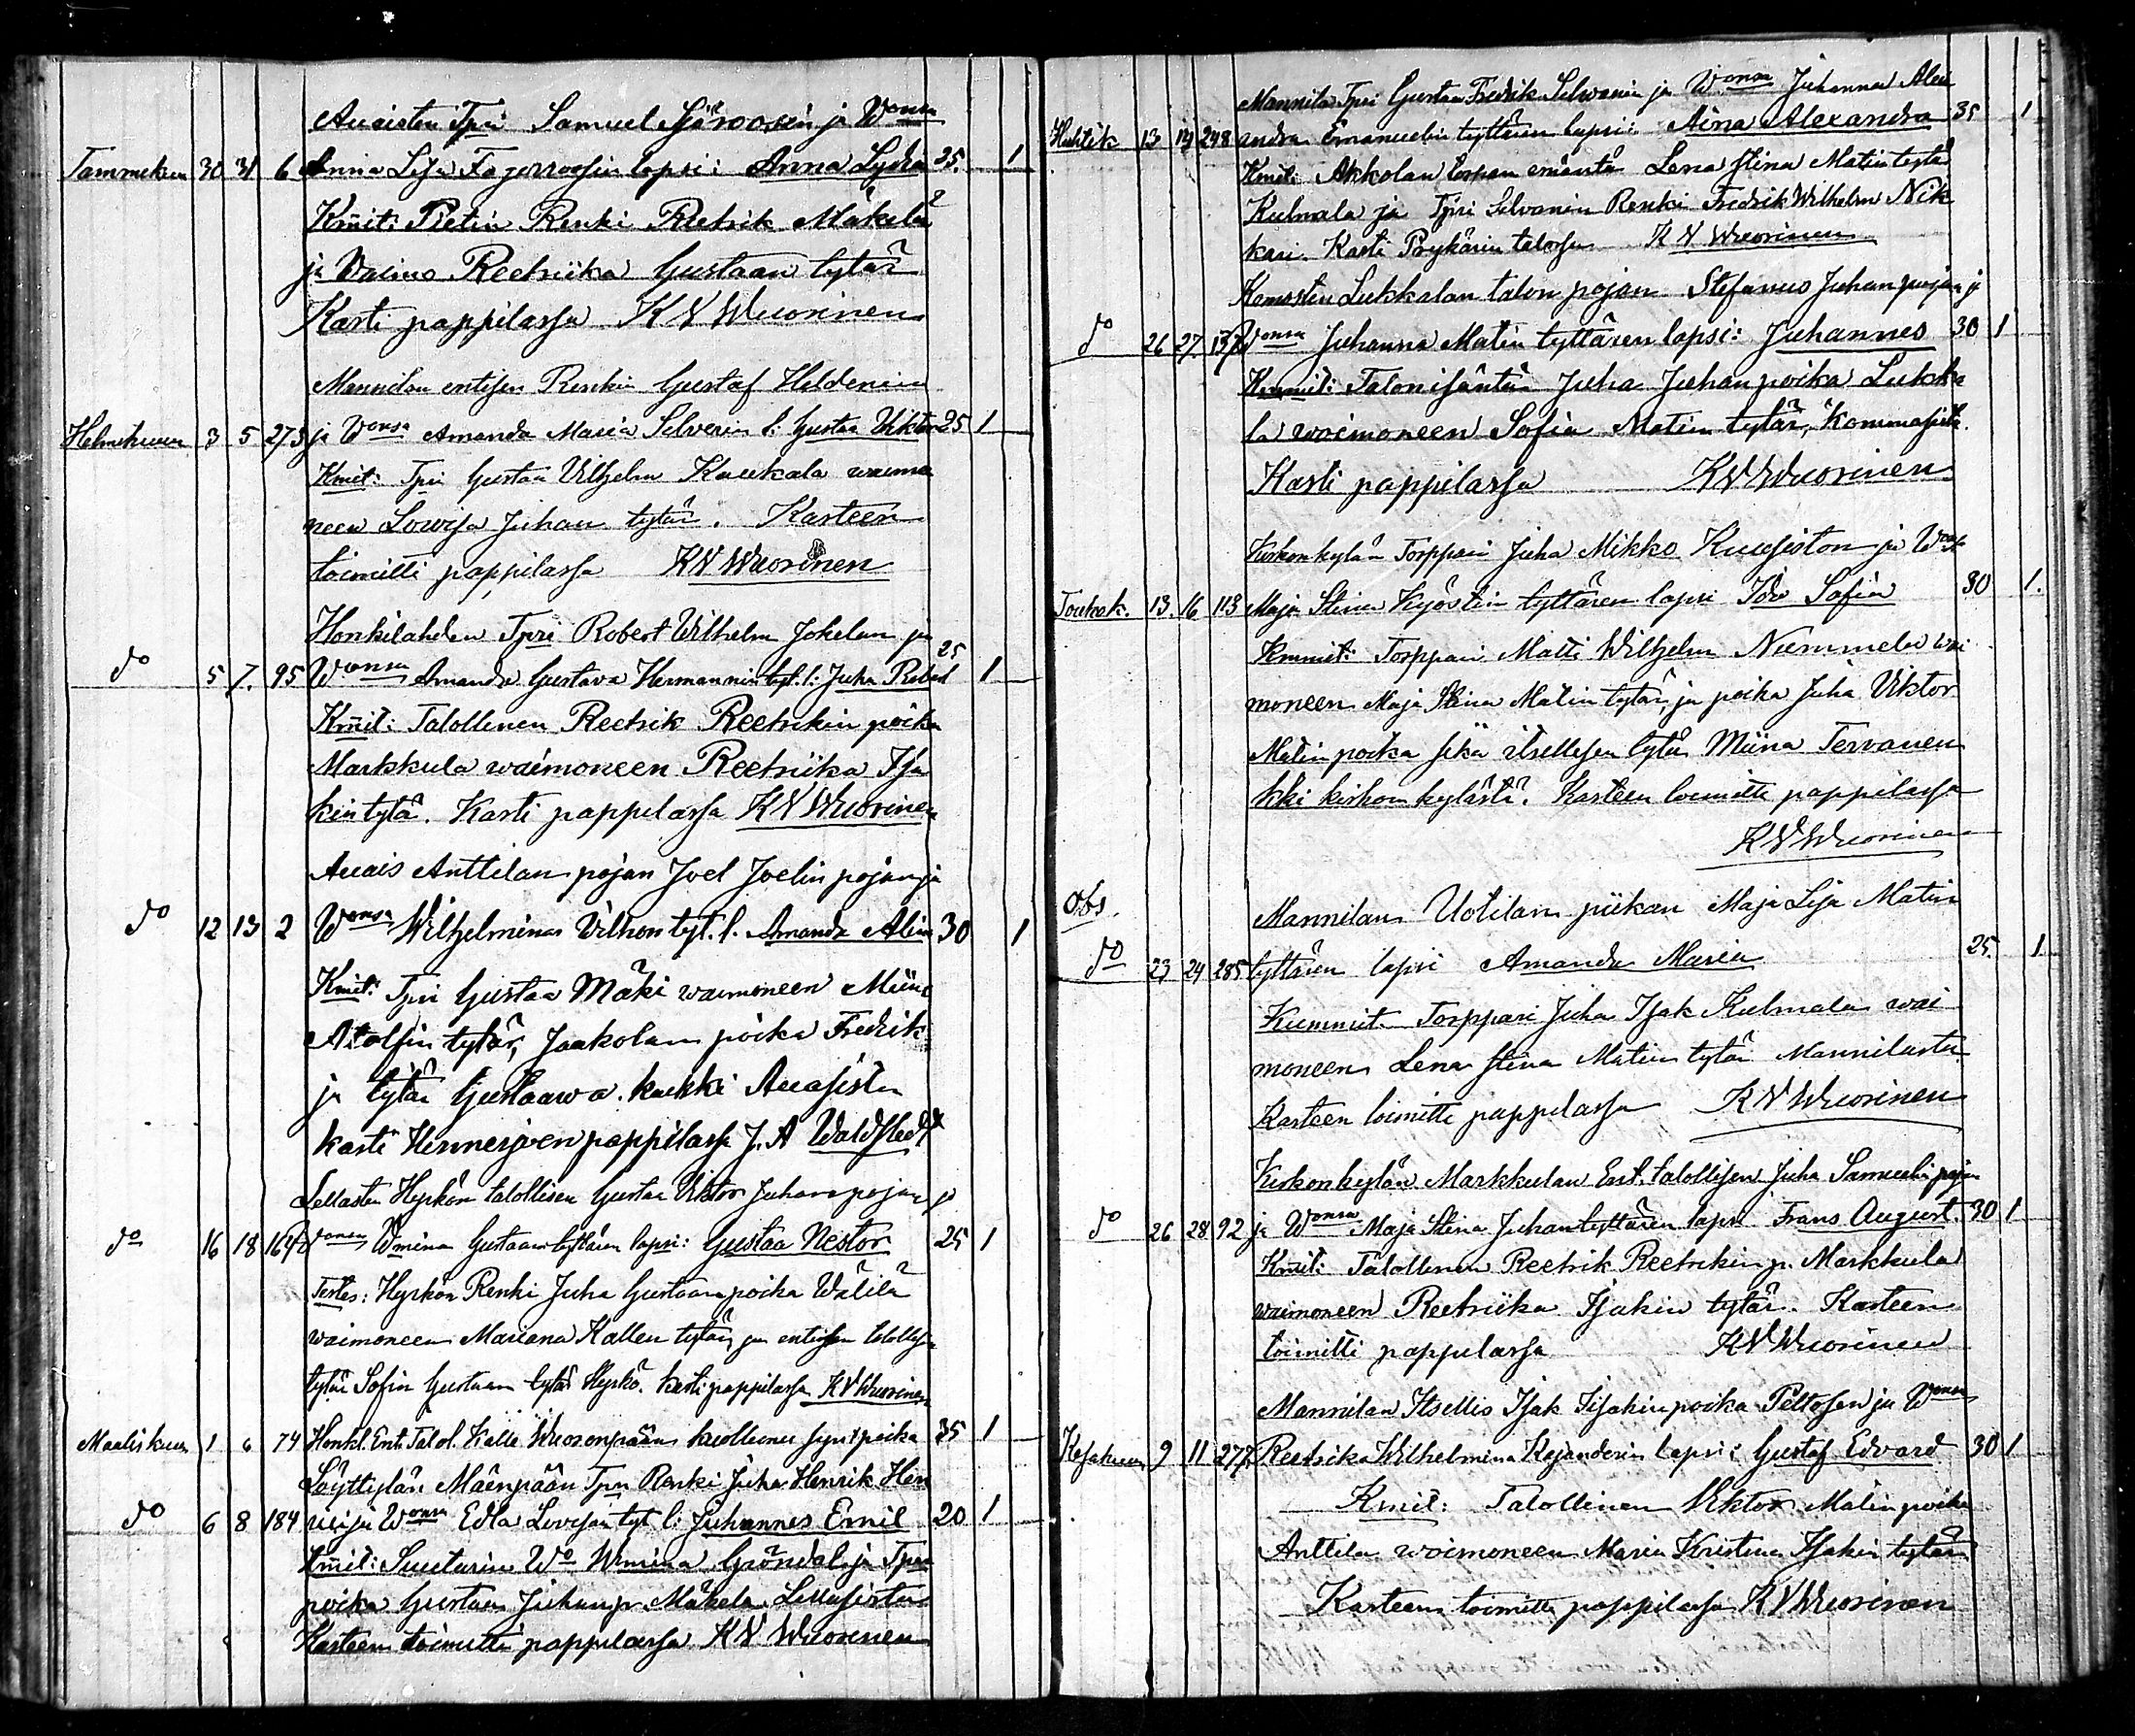 Auaisten Tpri Samuel Sjöroosin ja Wonsa
Tammekuun 30 31 6 Anna Lisa Fagerroosin lapsi: Anna Lydia 25. 1
Kmit: Pietin Renki Retrik Mäkelä
ja Vaimo Reetriika Gustaan tytär
Kasti pappilassa K V Wuorinen
Mannilan entisen Renkin Gustaf Heldenin
Helmikuun 3 5 273 ja Wonsa Amanda Maria Silverin l: Gustaa Viktor 25 1
Kmit: Tpri Gustaa Vilhjelm Kaukala waimo
neen Lowisa Juhan tytär. Kasteen
toimitti pappilassa KV Wuorinen
Honkilahden Tpri Robert Wilhelm Jokelan ja
do 5 7. 95 Wonsa Amanda Gustava Hermannin tyt. l: Juha Robert 25 1
Kmit: Talollinen Reetrik Reetrikin poika
Markkula waimoneen Reetriika Isa
kin tytä. Kasti pappilassa KV Wuorinen
Auais Anttilan pojan Joel Joelin pojan ja
do 12 13 2 Wonsa Wilhjelminan Vilhon tyt. l. Amanda Alina 30 1
Kmit: Tpri Gustaa Mäki waimoneen Miina
Atolfin tytär, Jaakolan poika Fredrik
ja tytär Gustaawa. kaikki Auasista
kasti Hinnerjoen pappilassa J. A Waldstedt
Lellasten Hyrkön talollisen Gustaa Viktor Juhanpojan ja
do 16 18 164 Wonsa Wmina Gustaan tyttären lapsi: Gustaa Nestor 25 1
Testes: Hyrkön Renki Juha Gustaanpoika Wälilä
waimoneen Mariana Kallen tytär, ja entisen talollisen
tytär Sofia Gustaan tytär Hyrkö. kasti pappilassa KV Wuorinen
Maaliskuun 1 6 74 Honkl. Ent. Talol. Kalle Wuorenpään kuolleena synt poika 35 1
Löyttylän Mäenpään Tpri Renki Juha Henrik Hen
do 6 8 184 ja Wonsa Edla Lovisan tyt l: Juhannes Emil 20 1
Kmit: Suutarin Wo Wmina Gröndal ja Tprin
poika Gustaa Juhanp. Mäkelä Lellasista
Kasteen toimitti pappilassa KV Wuorinen
Mannila Tpri Gustaa Fredrik Selvanin ja Wonsa Juhanna Alex
Huhtik 13 19 248 andra Emanuelin tyttären lapsi: Aina Alexandra 35 1
Kmit: Akkolan torpan emäntä Lena Stina Matin tytär
Kulmala ja Tpri Selvanin Renki Fredrik Wilhelm Nik
kari. Kasti Prykärin talossa K V Wuorinen
Komosten Lukkalan talon pojan Stefanus Juhanpojan ja
do 26 27. 137 Wonsa Juhanna Matin tyttären lapsi: Juhannes 30 1
Kummit: Talonisäntä Juha Juhanpoika Lukka
la waimoneen Sofia Matin tytär,
Kasti pappilassa KV Wuorinen
Kirkonkylän Torppari Juha Mikko Kuusiston ja Wonsa
Toukok. 13. 16 113 Maja Stina Kyöstin tyttären lapsi Ida Sofia 30 1.
Kmmit: Torppari Matti Wilhjelm Niemmelä wai
moneen Maja Stina Matin tytär, ja poika Juha Viktor
Matin poika sekä itsellisen tytär Miina Tervanen
kki kirkon kylästä. Kasteen toimitti pappilassa
KV Wuorinen
Obs.
Mannilan Uotilan piikan Maja Lisa Matin
do 23 24 285 tyttären lapsi Amanda Maria 25. 1
Kummit. Torppari Juha Isak Kulmala wai
moneen Lena Stina Matin tytär Mannilasta
Kasteen toimitti pappilassa KV Wuorinen
Kirkonkylän Markkulan Ent. talollisen Juha Samuelin pojan
do 26 28 92 ja Wonsa Maja Stina Juhantyttären lapsi Frans August. 30 1
Kmit: Talollinen Reetrik Reetrikin p. Markkula
waimoneen Reetriika Isakin tytär. Kasteen
toimitti pappilassa KV Wuorinen
Mannilan Itsellis Isak Iisakin poika Peltosen ja Wonsa
Kesäkuun 9 11 277. Reetrika Wilhelmina Kejanderin lapsi: Gustaf Edvard 30 1
Kmit: Talollinen Viktor Matin poika
Anttila waimoneen Maria Kristina Isakin tytär
Kasteen toimitti pappilassa KV Wuorinen